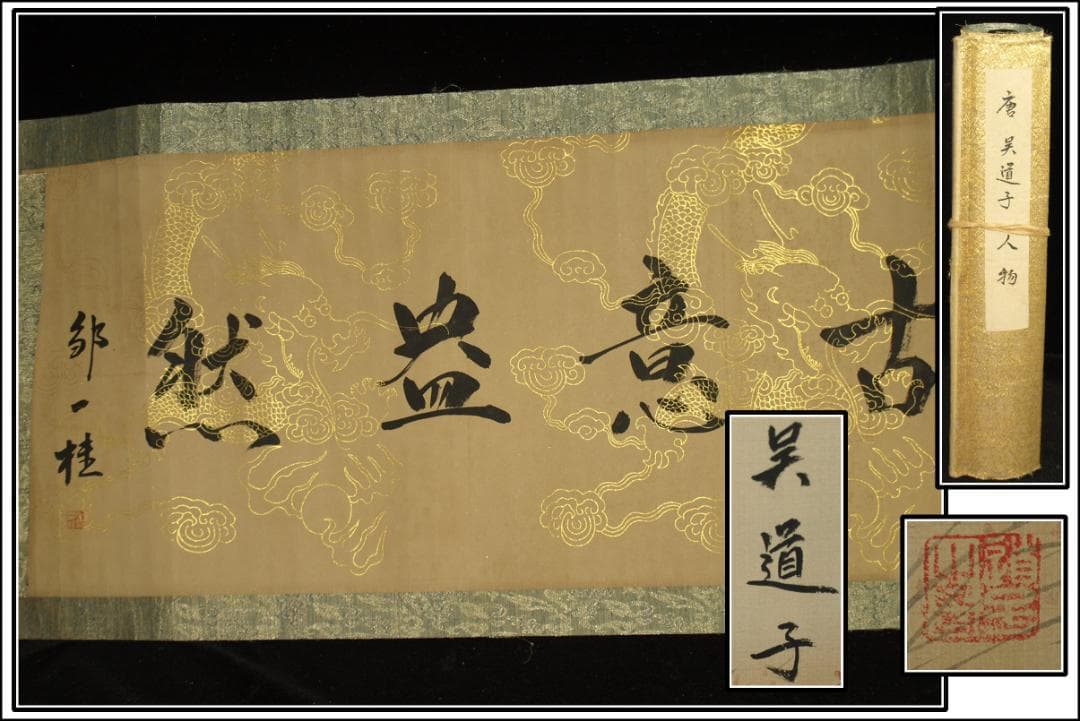 古意盎然
鄒一桂
唐 吴道子人物
吴道子